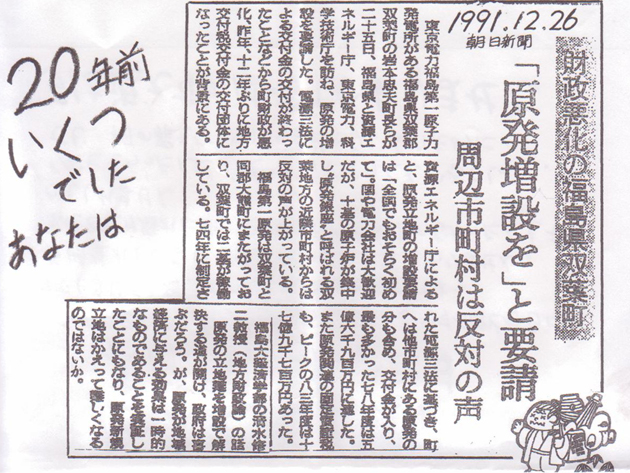 1991.12.26
朝日新聞
財政悪化の福島県双葉町
「原発増設を」と要請
周辺市町村は反対の声
東京電力福島第一原子力
発電所がある福島県双葉郡
双葉町の岩本忠夫町長らが
二十五日、福島県と資源エ
ネルギー庁、東京電力、科
学技術庁を訪ね、原発の増
設を要請した。電源三法に
よる交付金の交付が終わっ
たことなどから町財政が悪
化、昨年、十二年ぶりに地方
交付税交付金の交付団体に
なったことが背景にある。
資源エネルギー庁による
と、原発立地町の増設要請
は「全国でもおそらく初め
て」。国や電力会社は大歓迎
だが、十基の原子炉が集中
し“原発銀座”と呼ばれる双
葉地方の近隣市町村からは
反対の声が上がっている。
福島第一原発は双葉町と
同郡大熊町にまたがってお
り、双葉町では二基が稼働
している。七四年に制定さ
れた電源三法に基づき、町
へは他市町村にある原発の
分も含め、交付金が入り、
最も多かった七八年度は五
億六千九百万円に達した。
また原発関連の固定資産税
も、ピークの八三年度は十
七億九千七百万円あった。
福島大経済学部の清水修
二教授(地方財政論)の話
原発の立地難を増設で解
決する道が開け、政府は喜
ぶだろう。が、原発が地域
経済に与える効果は一時的
なものであることを実証し
たことにもなり、原発新規
立地はかえって難しくなる
のではないか。
20年前
いくつ
でした
あなたは